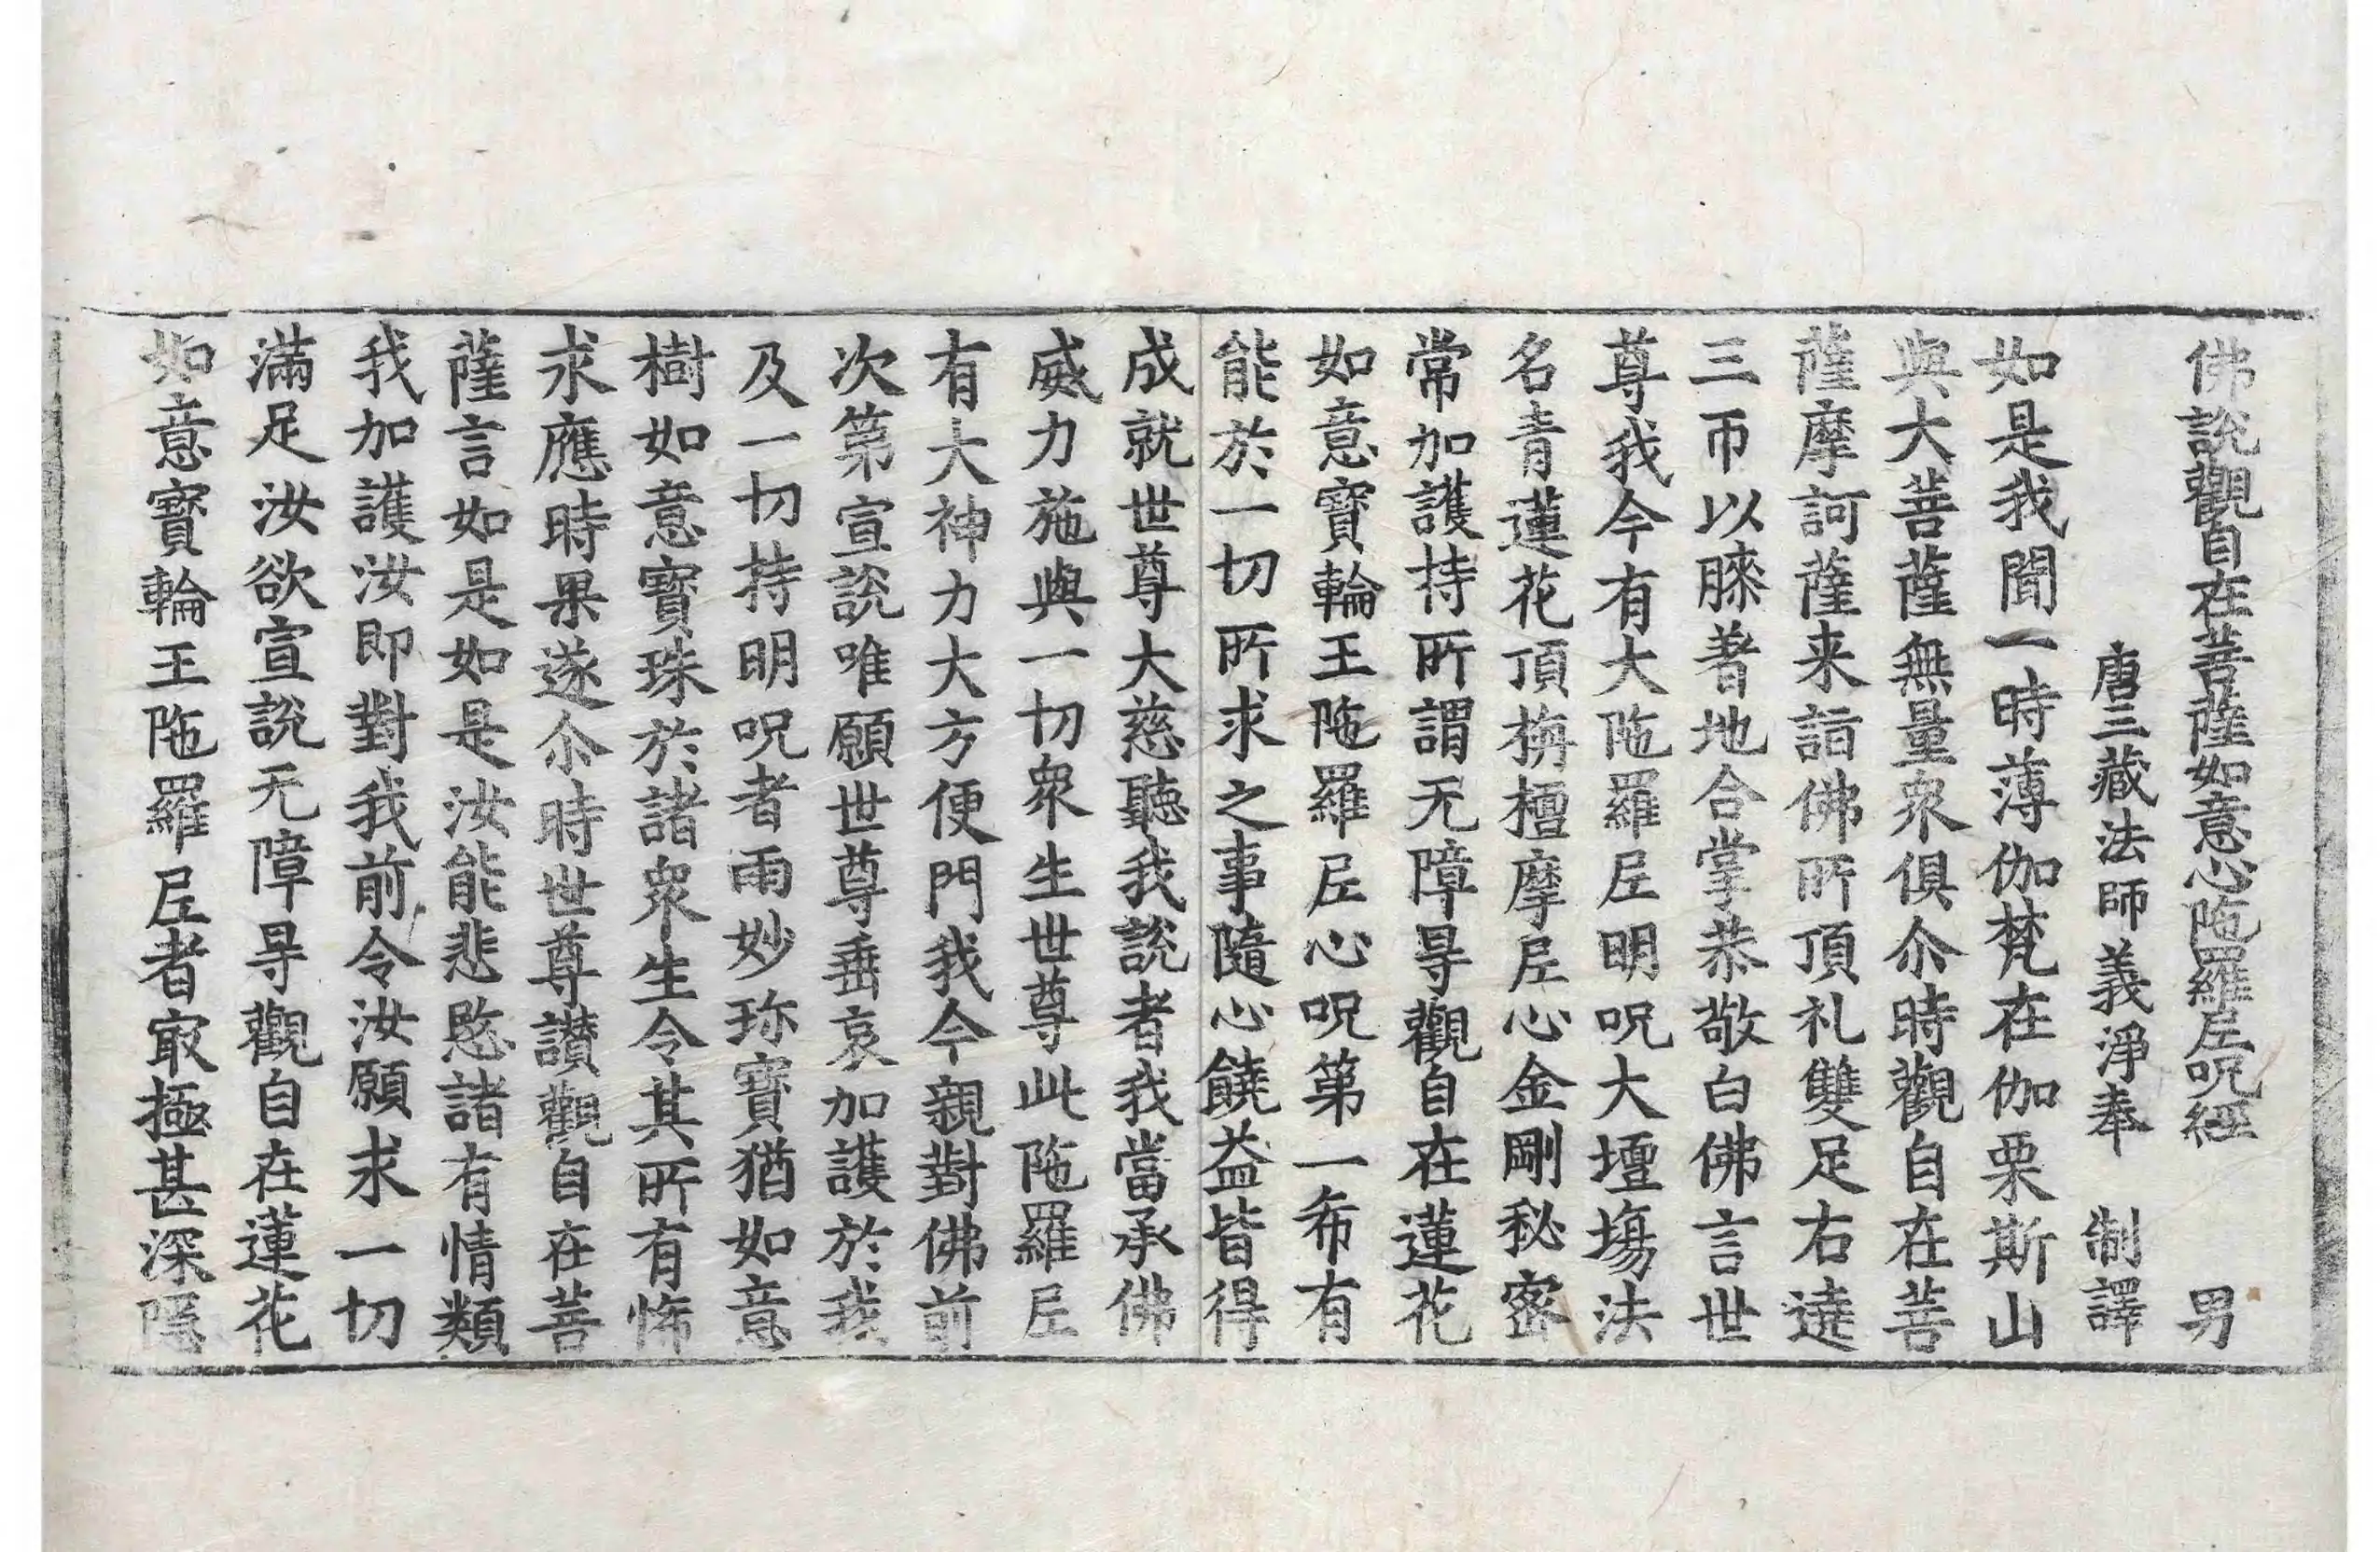 佛說觀自在菩薩如意心陁羅𡰱呪經 男
唐三藏法師義淨奉 制譯
如是我聞一時薄伽梵在伽栗斯山
與大菩薩無量衆俱尒時觀自在菩
薩摩訶薩来詣佛所頂礼雙足右遶
三帀以膝著地合掌恭敬白佛言世
尊我今有大陁羅𡰱明呪大壇場法
名青蓮花頂栴檀摩𡰱心金剛秘密
常加護持所謂无障㝵觀自在蓮花
如意寶輪王陁羅𡰱心呪第一希有
能於一切所求之事隨心饒益皆得
成就世尊大慈聽我說者我當承佛
威力施與一切衆生世尊此陁羅𡰱
有大神力大方便門我今親對佛前
次第宣說唯願世尊垂哀加護於我
及一切持明呪者雨妙珎寶猶如意
樹如意寶珠於諸衆生令其所有悕
求應時果遂尒時世尊讃觀自在菩
薩言如是如是汝能悲愍諸有情類
我加護汝即對我前令汝願求一切
滿足汝欲宣說无障㝵觀自在蓮花
如意寶輪王陁羅𡰱者㝡極甚深隱